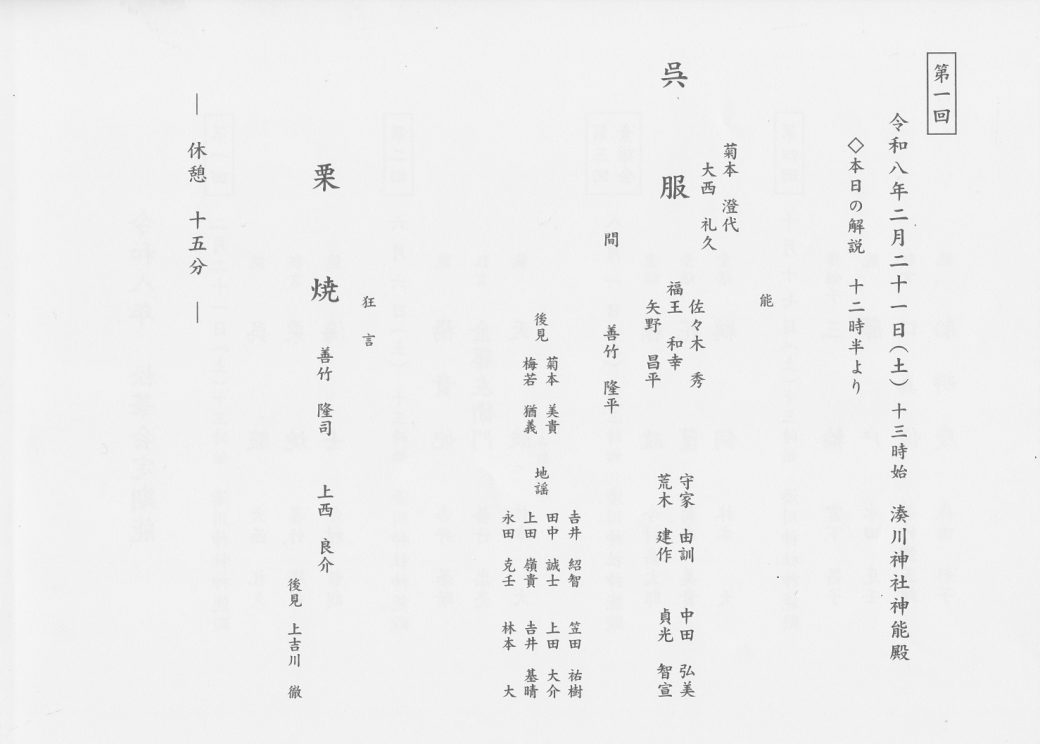 第一回
令和八年二月二十一日（土） 十三時始 湊川神社神能殿
◇本日の解説 十二時半より
能
呉服
菊本 澄代
大西 礼久
佐々木 秀
福王 和幸
矢野 昌平
守家 由訓 中田 弘美
荒木 建作 貞光 智宣
間 善竹 隆平
後見 菊本 美貴
梅若 猶義
地謡
吉井 紹智 笠田 祐樹
田中 誠士 上田 大介
上田 嶺貴 吉井 基晴
永田 克壬 林本 大
狂言
栗焼 善竹 隆司 上西 良介
後見 上吉川 徹
― 休憩 十五分 ―